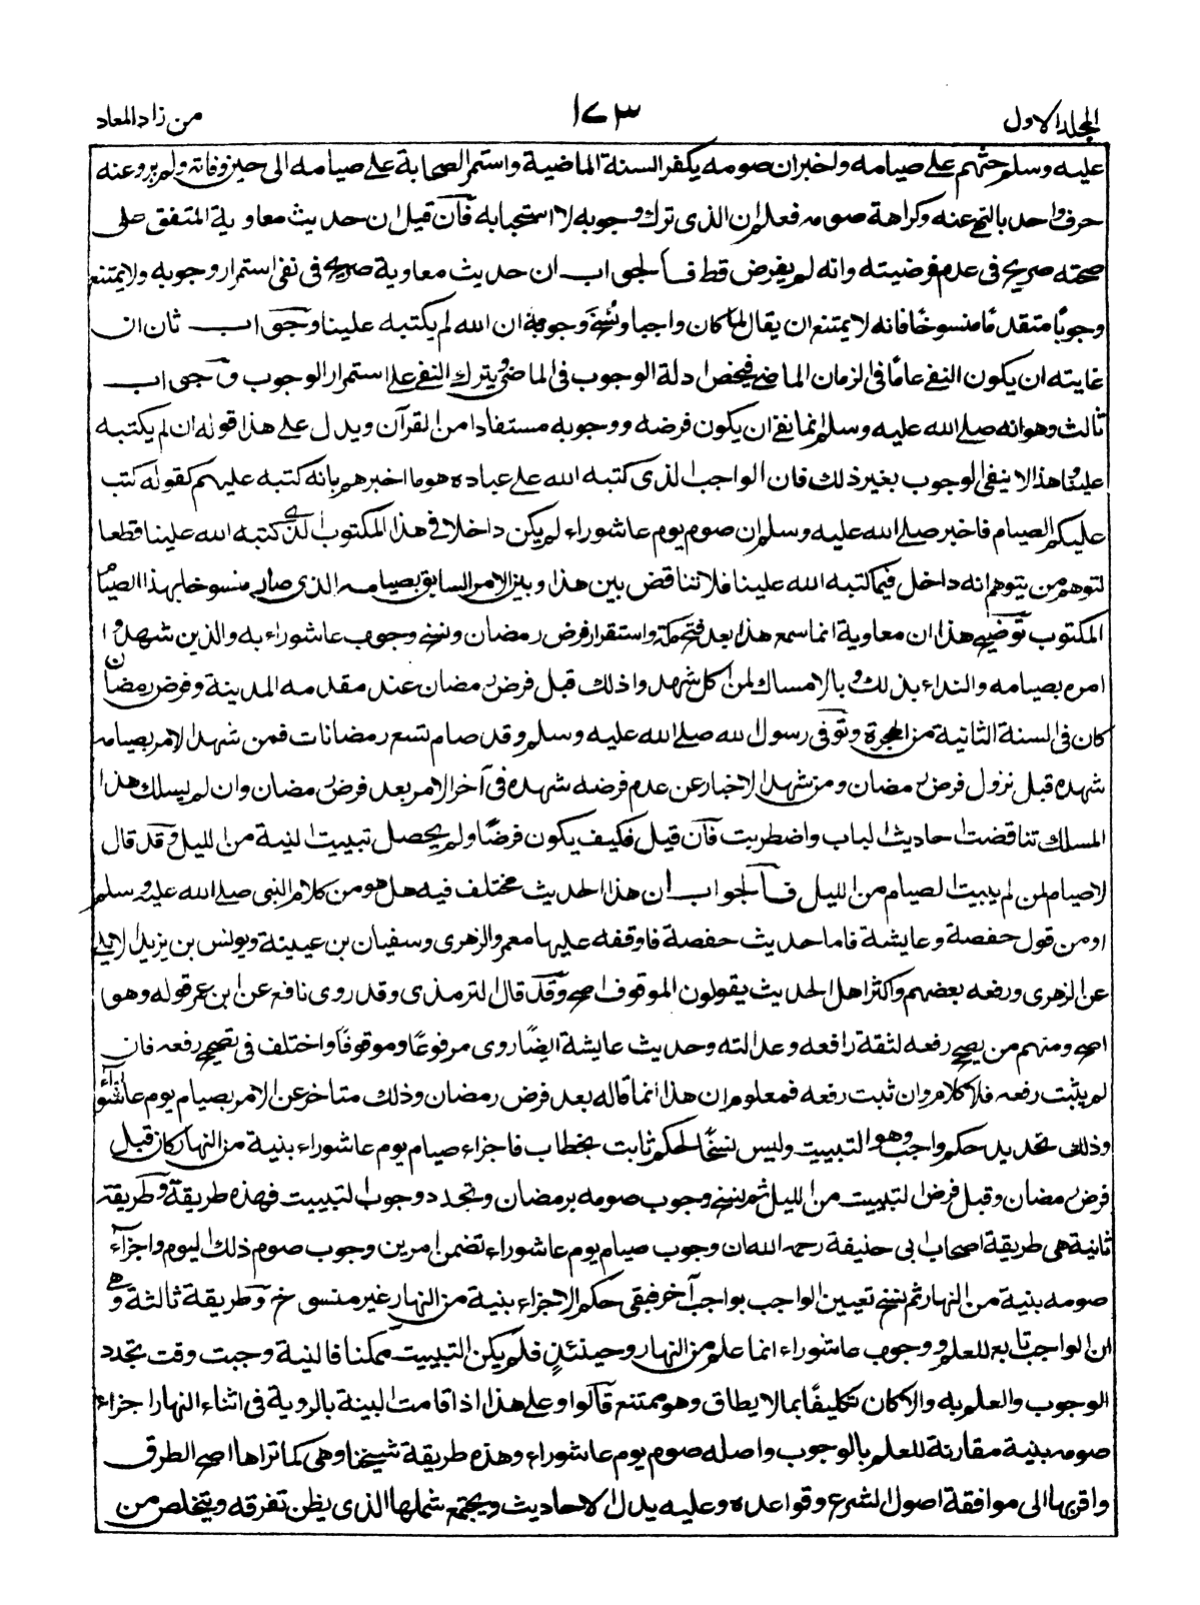 المجلد الاول
١٧٣
من زاد المعاد
عليه وسلم حثهم على صيامه واخبر ان صومه يكفر السنة الماضية واستمر الصحابة على صيامه الى حين وفاته ولم يرو عنه
حرف واحد بالنهي عنه وكراهة صومه فعلم ان الذى ترك وجوبه لا استحبابه فآن قيل ان حديث معاوية المتفق على
صحته صريح فى عدم فرضيته وانه لم يفرض قط فالجواب ان حديث معاوية صريح فى نفى استمرار وجوبه ولا يمتنع
وجوبًا متقدمًا منسوخًا فانه لا يمتنع ان يقال لما كان واجبا ونُسِخَ وجوبه ان الله لم يكتبه علينا وجواب ثان ان
غايته ان يكون النفى عامًا فى الزمان الماضى فيخص ادلة الوجوب فى الماضى ويترك النفى على استمرار الوجوب وجواب
ثالث وهو انه صلى الله عليه وسلم انما نفى ان يكون فرضه ووجوبه مستفادا من القرآن ويدل على هذا قوله ان لم يكتبه
علينا وهذا لا ينفى الوجوب بغير ذلك فان الواجب الذى كتبه الله على عباده هو ما اخبرهم بانه كتبه عليهم كقوله كتب
عليكم الصيام فاخبر صلى الله عليه وسلم ان صوم يوم عاشوراء لم يكن داخلا فى هذا المكتوب الذى كتبه الله علينا قطعا
لتوهم من يتوهم انه داخل فيما كتبه الله علينا فلا تناقض بين هذا وبين الامر السابق بصيامه الذى صار منسوخا بهذا الصيام
المكتوب توضيح هذا ان معاوية انما سمع هذا بعد فتح مكة واستقرار فرض رمضان ونسخ وجوب عاشوراء به والذين شهدوا
امره بصيامه والنداء بذلك وبالامساك لمن اكل شهدوا ذلك قبل فرض رمضان عند مقدمه المدينة وفرض رمضان
كان فى السنة الثانية من الهجرة وتوفى رسول الله صلى الله عليه وسلم وقد صام تسع رمضانات فمن شهد الامر بصيامه
شهده قبل نزول فرض رمضان ومن شهد الاخبار عن عدم فرضه شهده فى آخر الامر بعد فرض رمضان وان لم يسلك هذا
المسلك تناقضت احاديث الباب واضطربت فآن قيل فكيف يكون فرضًا ولم يحصل تبييت النية من الليل وقد قال
لا صيام لمن لم يبيت الصيام من الليل فالجواب ان هذا الحديث مختلف فيه هل هو من كلام النبى صلى الله عليه وسلم
او من قول حفصة وعايشة فاما حديث حفصة فاوقفه عليها معمر والزهرى وسفيان بن عيينة ويونس بن يزيد الايلى
عن الزهرى ورفعه بعضهم واكثر اهل الحديث يقولون الموقوف اصح وقد قال الترمذى وقد روى نافع عن ابن عمر قوله وهو
اصح ومنهم من يصحح رفعه لثقة رافعه وعدالته وحديث عايشة ايضًا روى مرفوعًا وموقوفًا واختلف فى تصحيح رفعه فان
لم يثبت رفعه فلا كلام وان ثبت رفعه فمعلوم ان هذا انما قاله بعد فرض رمضان وذلك متاخر عن الامر بصيام يوم عاشوراء
وذلك تجديد حكم واجب وهو التبييت وليس نسخًا لحكم ثابت بخطاب فاجزاء صيام يوم عاشوراء بنية من النهار كان قبل
فرض رمضان وقبل فرض التبييت من الليل ثم نسخ وجوب صومه برمضان وتجدد وجوب التبييت فهذه طريقة وطريقة
ثانية هى طريقة اصحاب ابى حنيفة رحمه الله ان وجوب صيام يوم عاشوراء تضمن امرين وجوب صوم ذلك اليوم واجزاء
صومه بنية من النهار ثم نسخ تعيين الواجب بواجب آخر فبقى حكم الاجزاء بنية من النهار غير منسوخ وطريقة ثالثة وهى
ان الواجب تابع للعلم ووجوب عاشوراء انما علم من النهار وحينئذٍ فلم يكن التبييت ممكنا فالنية وجبت وقت تجدد
الوجوب والعلم به والا كان تكليفًا بما لا يطاق وهو ممتنع قالوا وعلى هذا اذا قامت البينة بالروية فى اثناء النهار اجزاء
صومه بنية مقارنة للعلم بالوجوب واصله صوم يوم عاشوراء وهذه طريقة شيخنا وهى كما تراها اصح الطرق
واقربها الى موافقة اصول الشرع وقواعده وعليه يدل الاحاديث ويجتمع شملها الذى يظن تفرقه ويتخلص من